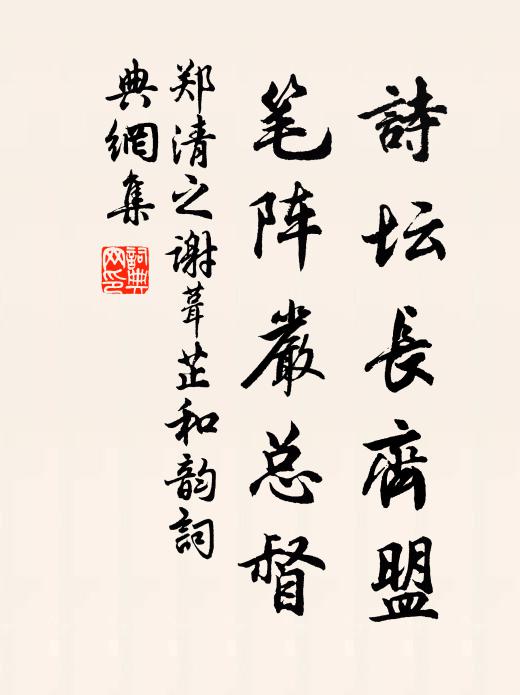 詩坛長齊盟
笔阵嚴总督
郑清之谢葺芷和韵詞
典網集
詞典網印